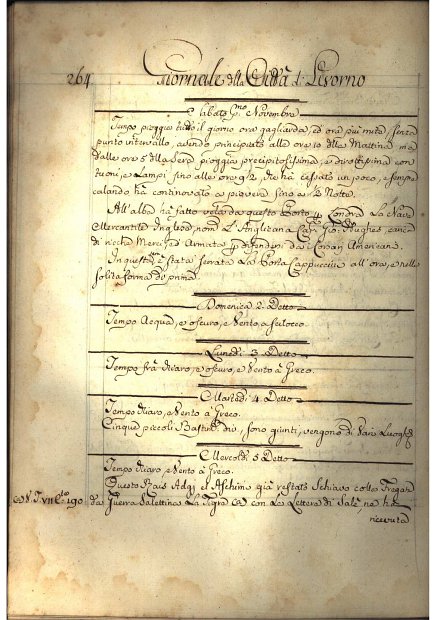 264. Giornale della Città di Livorno
Sabato p.mo Novembre
Tempo pioggia tutto il giorno ora gagliarda, ed ora più mite, senza
punto intervallo, avendo principiato alle ore 10 della Mattina, ma
dalle ore 5 della Sera pioggia precipitosissima, e dirottissima con
tuoni, e Lampi sino alle ore 9 1/2, che hà cessato un poco, e sempre
calando hà continovato a piovere sino a 1/2 Notte.
All'alba hà fatto vela da questo Porto p Londra La Nave
Mercantile Inglese, nom.ta L'Anglicana Cap. Gio. Hughes, carica
di ricche Merci, ed Armata p difendersi dai Corsari Americani.
In questa è stata serrata La Porta Cappuccini all'ora, e nelle
solita forma di prima.
Domenica 2. Detto
Tempo Acqua, e oscuro, e Vento a scilocco.
Lunedì 3. Detto
Tempo frà chiaro, e oscuro, e Vento à Greco.
Martedì 4. Detto
Tempo chiaro, e Vento à Greco.
Cinque piccoli Bastim.ti div. sono giunti, vengono di Varj Luoghi.
Mercoldì 5 Detto
Tempo chiaro, e Vento à Greco.
Questo Rais Adgi el Aschim già restato Schiavo colla Fregata
190 da Guerra Salettina La Tegra con La Lettera di Salè, ne hà
ricevuta